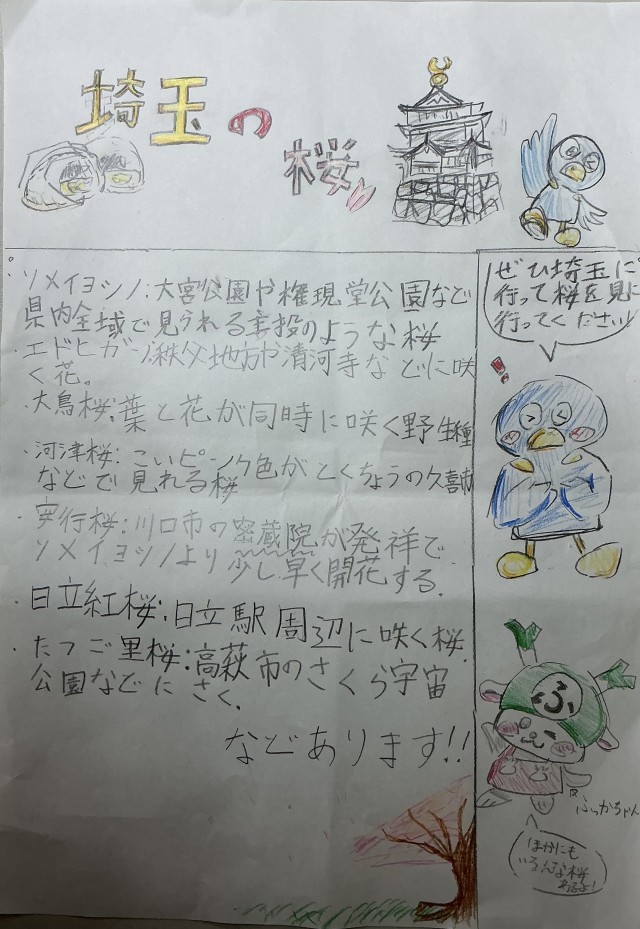 埼玉の
桜
ソメイヨシノ:大宮公園や権現堂公園など
県内全域で見られる主役のような桜
・エドヒガン:秩父地方や清河寺などに咲
く花。
・大島桜:葉と花が同時に咲く野生種
・河津桜:こいピンク色がとくちょうの久喜市
などで見れる桜
・安行桜:川口市の密蔵院が発祥で
ソメイヨシノより少し早く開花する.
・日立紅桜:日立駅周辺に咲く桜.
・たつご里桜:高萩市のさくら宇宙
公園などにさく.
などあります!!
ぜひ埼玉に
行って桜を見に
行ってください!
!
ふ
ふっかちゃん
ほかにも
いろんな桜
あるよ!